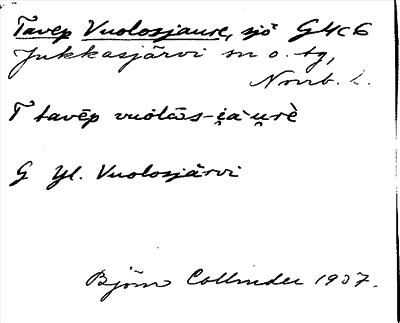 Tavep Vuolosjaure, sjö G4c6
Jukkasjärvi sn o. tg,
Norrb. l.
T tavēp vuolās-i̯a·u̯rè
G Yl. Vuolosjärvi
Björn Collinder 1937.